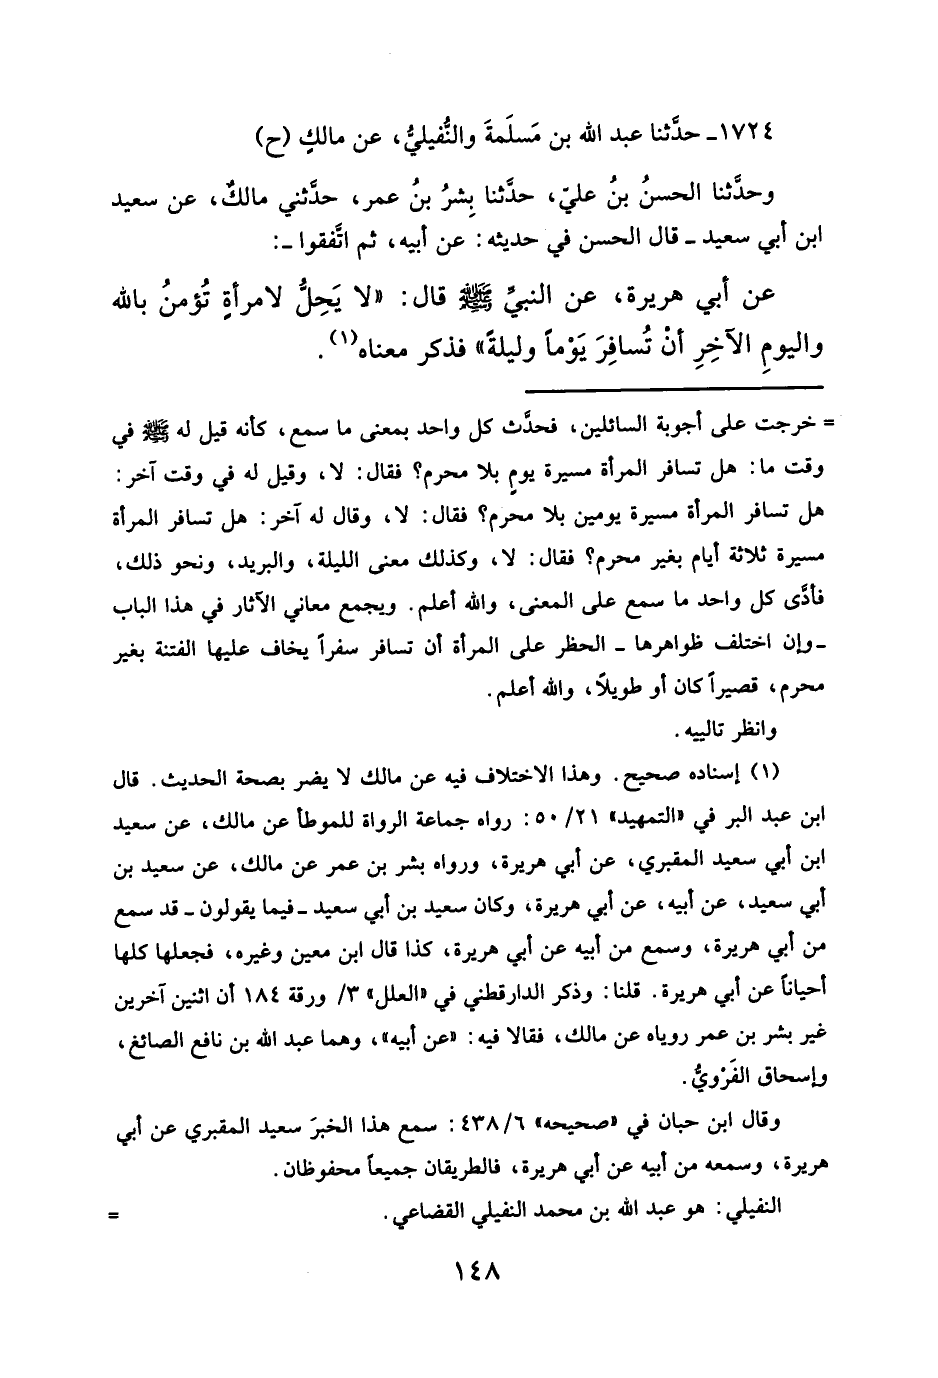 ١٧٢٤ـ حدَّثنا عبد الله بن مَسلَمةَ والنُّفيليُّ، عن مالكٍ (ح)
وحدَّثنا الحسنُ بنُ عليّ، حدَّثنا بِشرُ بنُ عمر، حدَّثني مالكٌ، عن سعيد
ابن أبي سعيد ـ قال الحسن في حديثه: عن أبيه، ثم اتَّفقوا ـ:
عن أبي هريرة، عن النبيِّ ﷺ قال: «لا يَحِلُّ لامرأةٍ تُؤمنُ بالله
واليومِ الآخِرِ أنْ تُسافِرَ يَوْماً وليلةً» فذكر معناه(١).
= خرجت على أجوبة السائلين، فحدَّث كل واحد بمعنى ما سمع، كأنه قيل له ﷺ في
وقت ما: هل تسافر المرأة مسيرة يومٍ بلا محرم؟ فقال: لا، وقيل له في وقت آخر:
هل تسافر المرأة مسيرة يومين بلا محرم؟ فقال: لا، وقال له آخر: هل تسافر المرأة
مسيرة ثلاثة أيام بغير محرم؟ فقال: لا، وكذلك معنى الليلة، والبريد، ونحو ذلك،
فأدَّى كل واحد ما سمع على المعنى، والله أعلم. ويجمع معاني الآثار في هذا الباب
ـ وإن اختلف ظواهرها ـ الحظر على المرأة أن تسافر سفراً يخاف عليها الفتنة بغير
محرم، قصيراً كان أو طويلاً، والله أعلم.
وانظر تالييه.
(١) إسناده صحيح. وهذا الاختلاف فيه عن مالك لا يضر بصحة الحديث. قال
ابن عبد البر في «التمهيد» ٢١/ ٥٠: رواه جماعة الرواة للموطأ عن مالك، عن سعيد
ابن أبي سعيد المقبري، عن أبي هريرة، ورواه بشر بن عمر عن مالك، عن سعيد بن
أبي سعيد، عن أبيه، عن أبي هريرة، وكان سعيد بن أبي سعيد ـ فيما يقولون ـ قد سمع
من أبي هريرة، وسمع من أبيه عن أبي هريرة، كذا قال ابن معين وغيره، فجعلها كلها
أحياناً عن أبي هريرة. قلنا: وذكر الدارقطني في «العلل» ٣/ ورقة ١٨٤ أن اثنين آخرين
غير بشر بن عمر روياه عن مالك، فقالا فيه: «عن أبيه»، وهما عبد الله بن نافع الصائغ،
وإسحاق الفَرْويُّ.
وقال ابن حبان في «صحيحه» ٦/ ٤٣٨: سمع هذا الخبرَ سعيد المقبري عن أبي
هريرة، وسمعه من أبيه عن أبي هريرة، فالطريقان جميعاً محفوظان.
النفيلي: هو عبد الله بن محمد النفيلي القضاعي. =
١٤٨